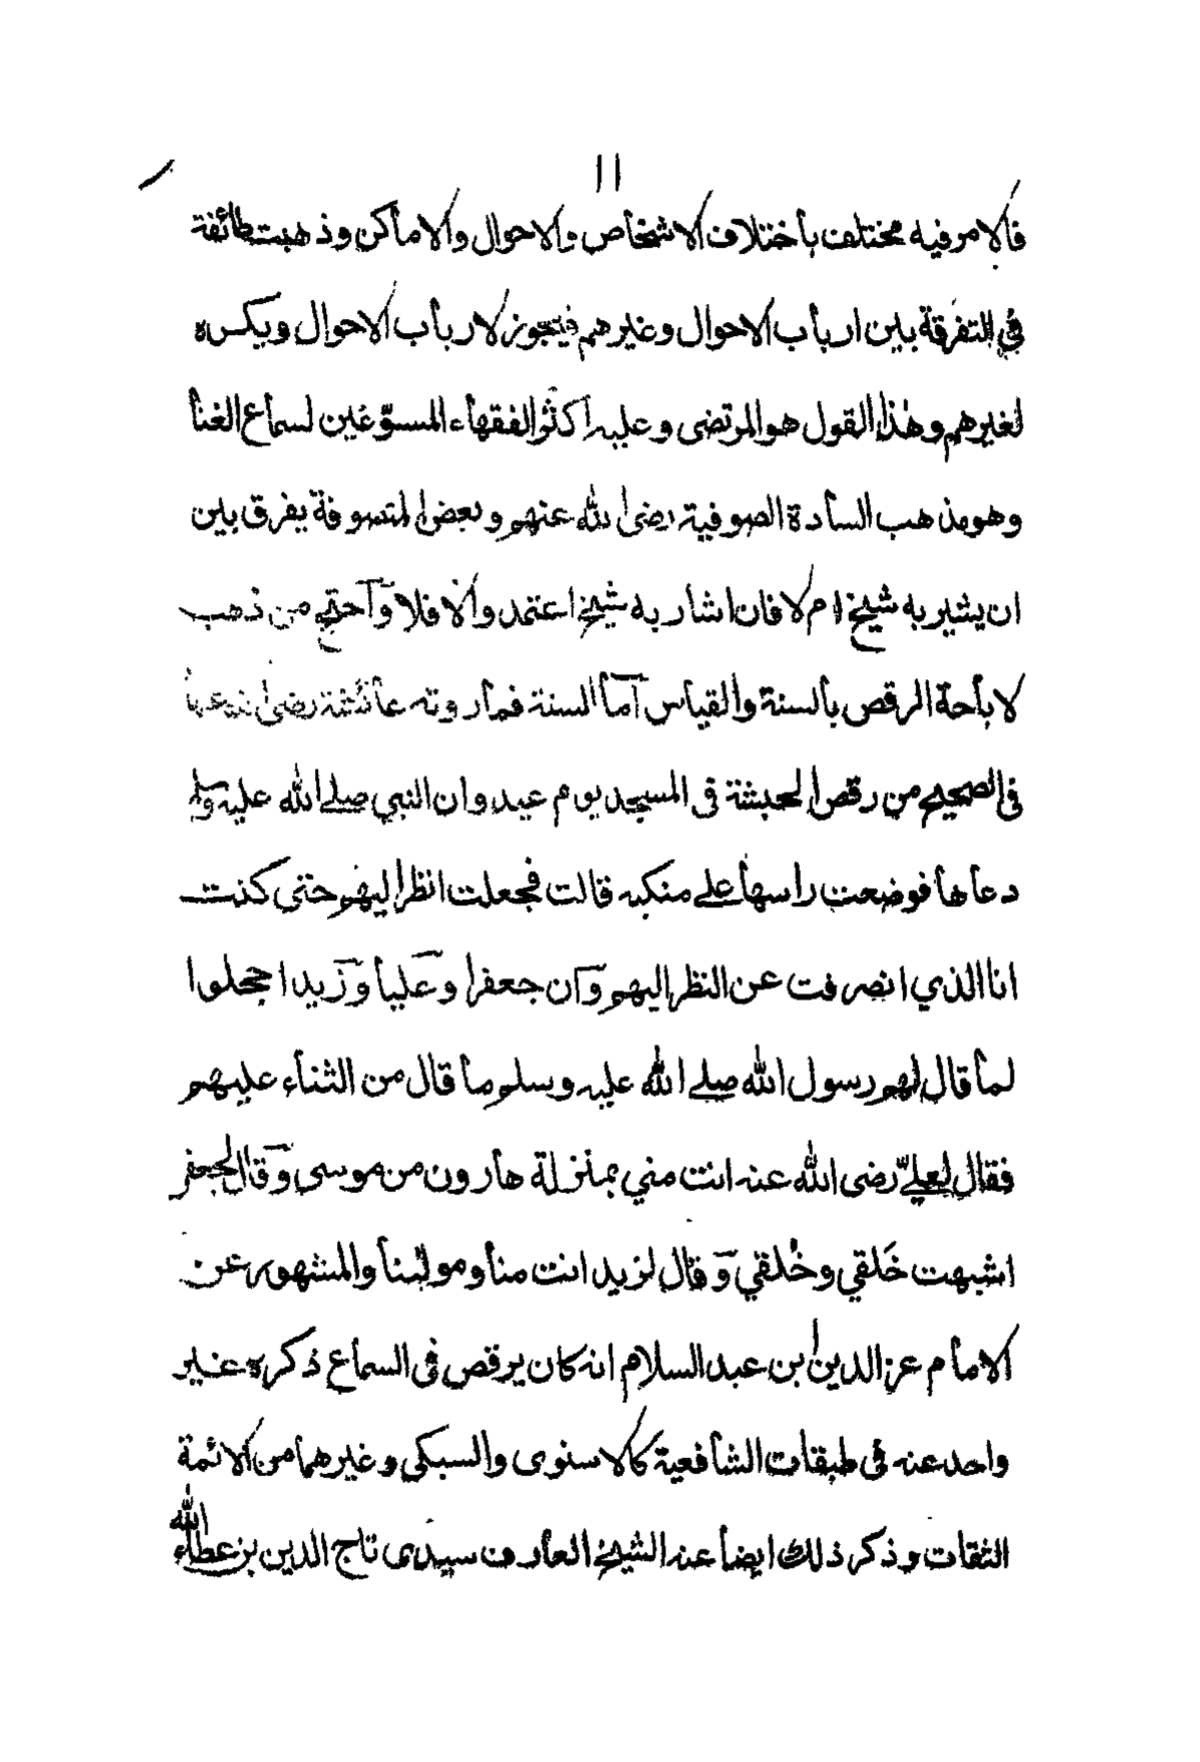 ١١
فالامر فيه مختلف باختلاف الاشخاص والاحوال والاماكن وذهبت طائفة
في التفرقة بين ارباب الاحوال وغيرهم فيجوز لارباب الاحوال ويكره
لغيرهم وهذا القول هو المرتضى وعليه اكثر الفقهاء المسوّغين لسماع الغنا
وهو مذهب السادة الصوفية رضى الله عنهم وبعض المتصوفة يفرق بين
ان يشير به شيخ ام لا فان اشار به شيخ اعتمد والا فلا وآحتج من ذهب
لاباحة الرقص بالسنة والقياس آما السنة فما روته عائشة رضى الله عنها
فى الصحيح من رقص الحبشة فى المسجد يوم عيد وان النبي صلے الله عليه وسلم
دعاها فوضعت راسها علے منكبه قالت فجعلت انظر اليهم حتى كنت
انا الذي انصرفت عن النظر اليهم وآن جعفرا وعليا وزيدا حجلوا
لما قال لهم رسول الله صلے الله عليه وسلم ما قال من الثناء عليهم
فقال لعليّ رضى الله عنه انت مني بمنزلة هارون من موسى وقال لجعفر
اشبهت خَلقي وخُلقي وقال لزيد انت منا ومولٰىنا والمشهور عن
الامام عز الدين ابن عبد السلام انه كان يرقص فى السماع ذكره غير
واحد عنه في طبقات الشافعية كالاسنوى والسبكي وغيرهما من الائمة
الثقات وذكر ذلك ايضا عنه الشيخ العارف سيدى تاج الدين بن عطاء الله